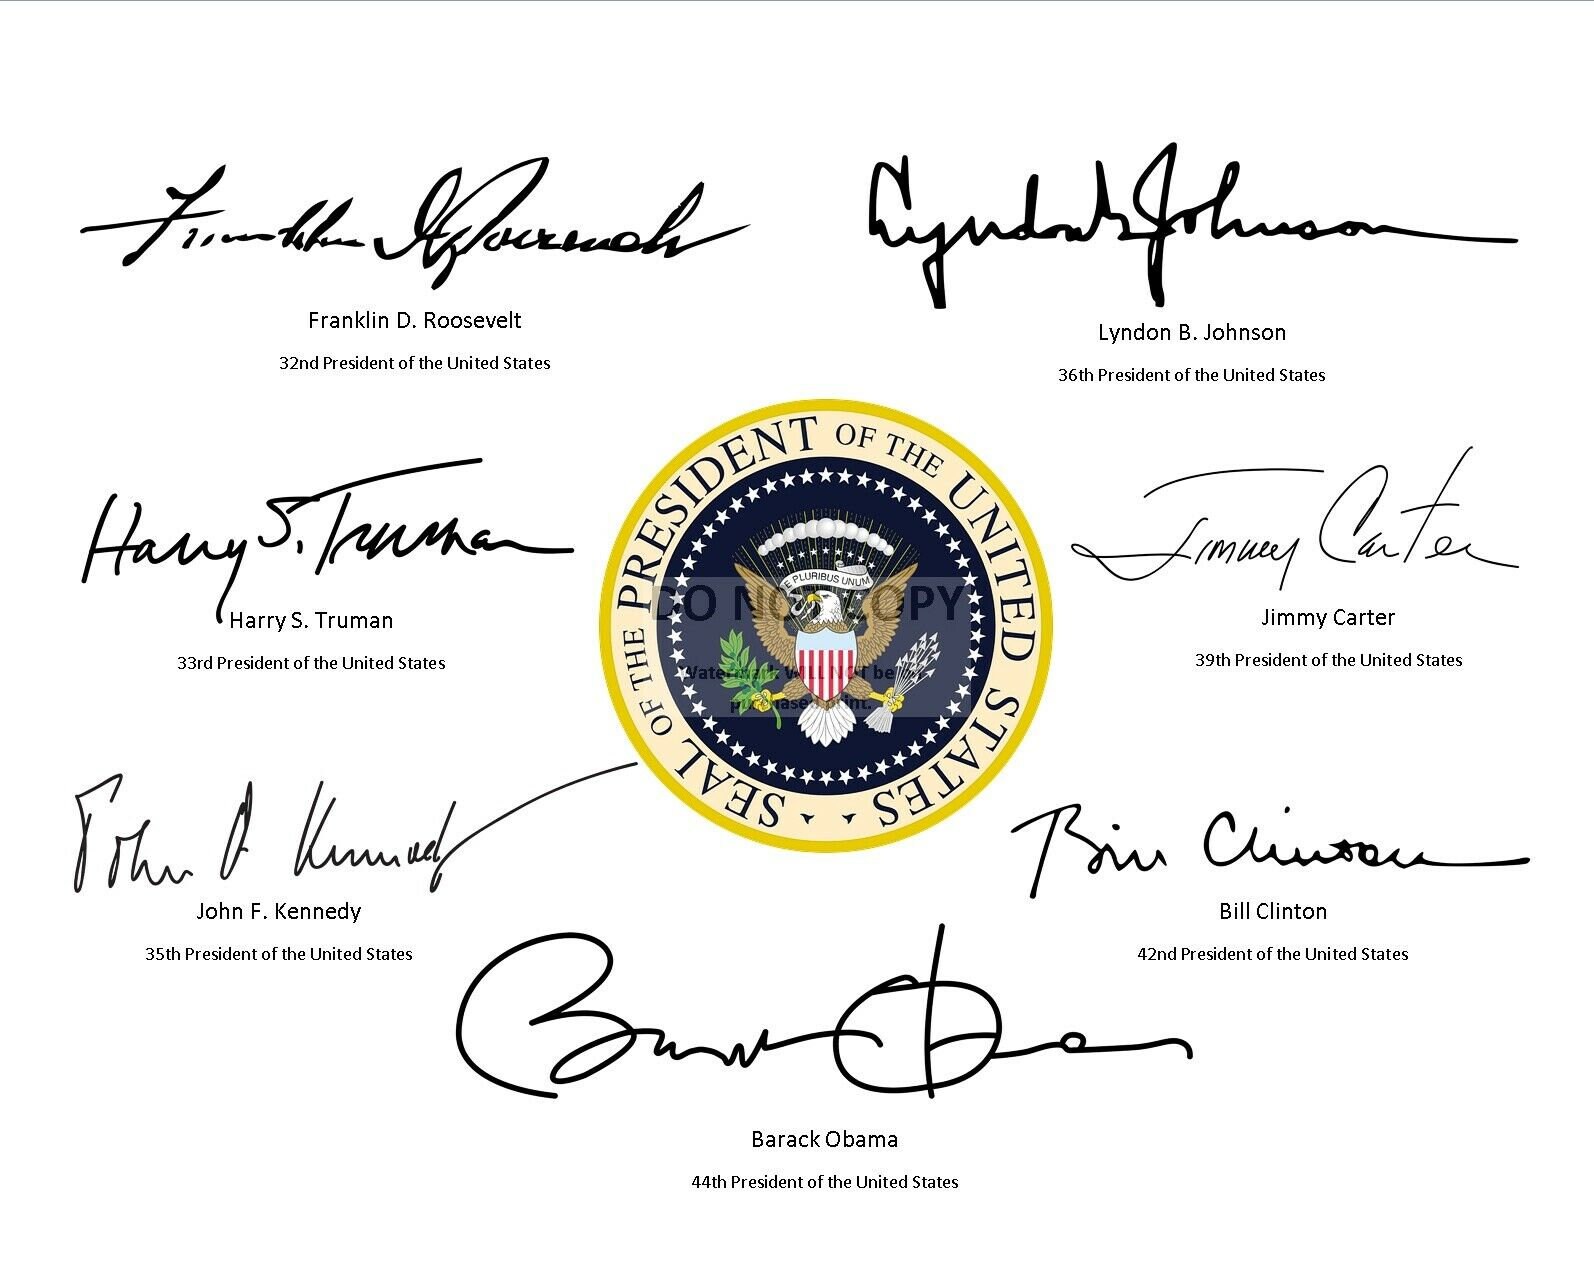 Franklin D Roosevelt
Franklin D. Roosevelt
32nd President of the United States
Lyndon B Johnson
Lyndon B. Johnson
36th President of the United States
Harry S. Truman
Harry S. Truman
33rd President of the United States
SEAL OF THE PRESIDENT OF THE UNITED STATES
E PLURIBUS UNUM
DO NOT COPY
Watermark WILL NOT be
purchased print.
Jimmy Carter
Jimmy Carter
39th President of the United States
John F Kennedy
John F. Kennedy
35th President of the United States
Bill Clinton
Bill Clinton
42nd President of the United States
Barack Obama
Barack Obama
44th President of the United States